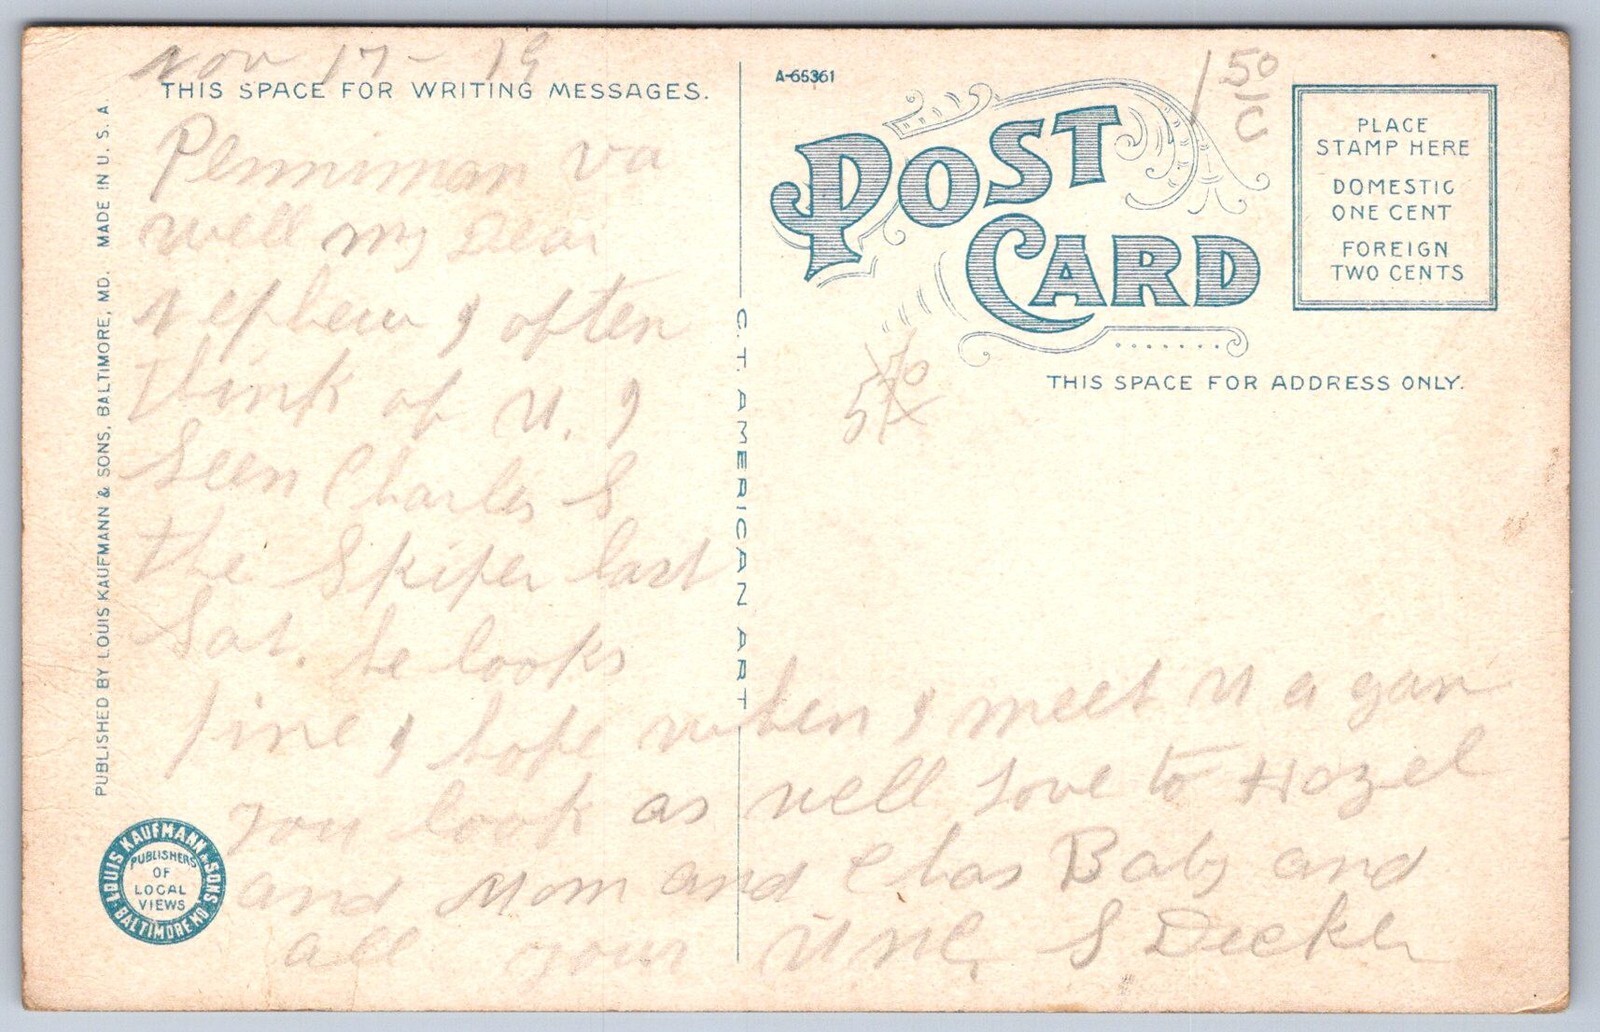 Nov 17 - 19
THIS SPACE FOR WRITING MESSAGES.
Penniman va
well my Dear
nephew I often
think of U. I
Seen Charles S
the Skiper last
Sat. he looks
fine I hope when I meet U a gan
you look as well Love to Hazel
and Mom and Chas Baby and
all your Uncl, S Decker
PUBLISHED BY LOUIS KAUFMANN & SONS, BALTIMORE, MD. MADE IN U. S. A
LOUIS KAUFMANN & SONS
BALTIMORE MD
PUBLISHERS
OF
LOCAL
VIEWS
C. T. AMERICAN ART
A-65361
POST
CARD
THIS SPACE FOR ADDRESS ONLY.
1 50
C
PLACE
STAMP HERE
DOMESTIC
ONE CENT
FOREIGN
TWO CENTS